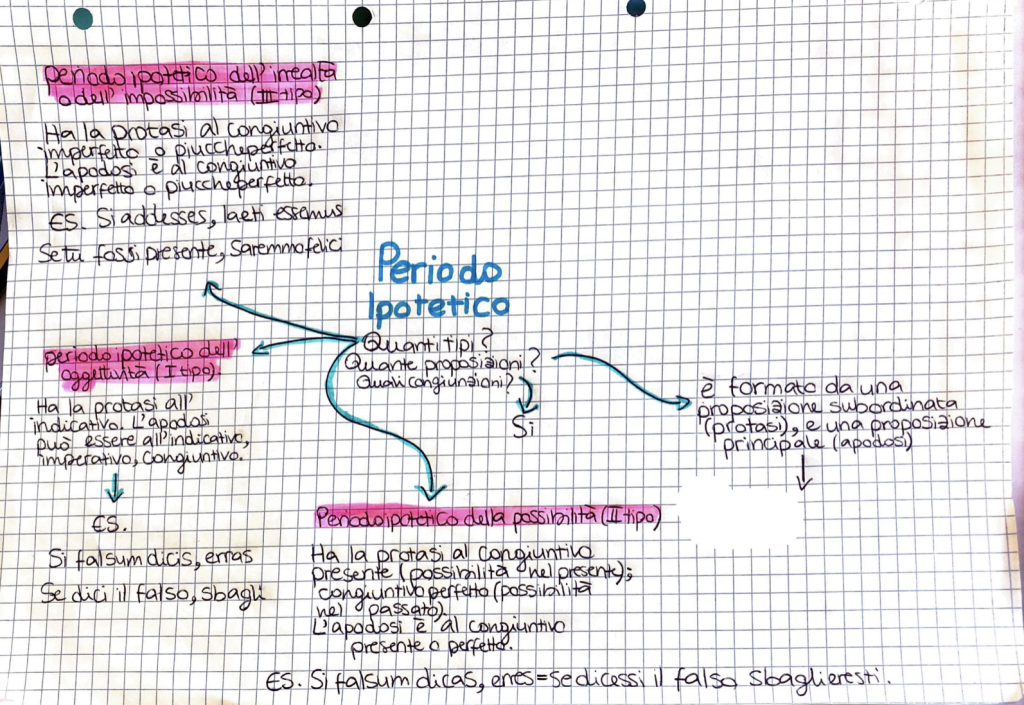 periodo ipotetico dell'irrealtà
o dell'impossibilità (III tipo)
Ha la protasi al congiuntivo
imperfetto o piuccheperfetto.
L'apodosi è al congiuntivo
imperfetto o piuccheperfetto.
ES. Si addesses, laeti essemus
Se tu fossi presente, saremmo felici
Periodo
Ipotetico
Quanti tipi?
Quante proposizioni?
Quali congiunzioni?
Si
periodo ipotetico dell'
oggettività (I tipo).
Ha la protasi all'
indicativo. L'apodosi
può essere all'indicativo,
imperativo, congiuntivo.
ES.
Si falsum dicis, erras
Se dici il falso, sbagli
è formato da una
proposizione subordinata
(protasi), e una proposizione
principale (apodosi)
Periodo ipotetico della possibilità (II tipo)
Ha la protasi al congiuntivo
presente (possibilità nel presente);
congiuntivo perfetto (possibilità
nel passato).
L'apodosi è al congiuntivo
presente o perfetto.
ES. Si falsum dicas, erres = se dicessi il falso sbaglieresti.